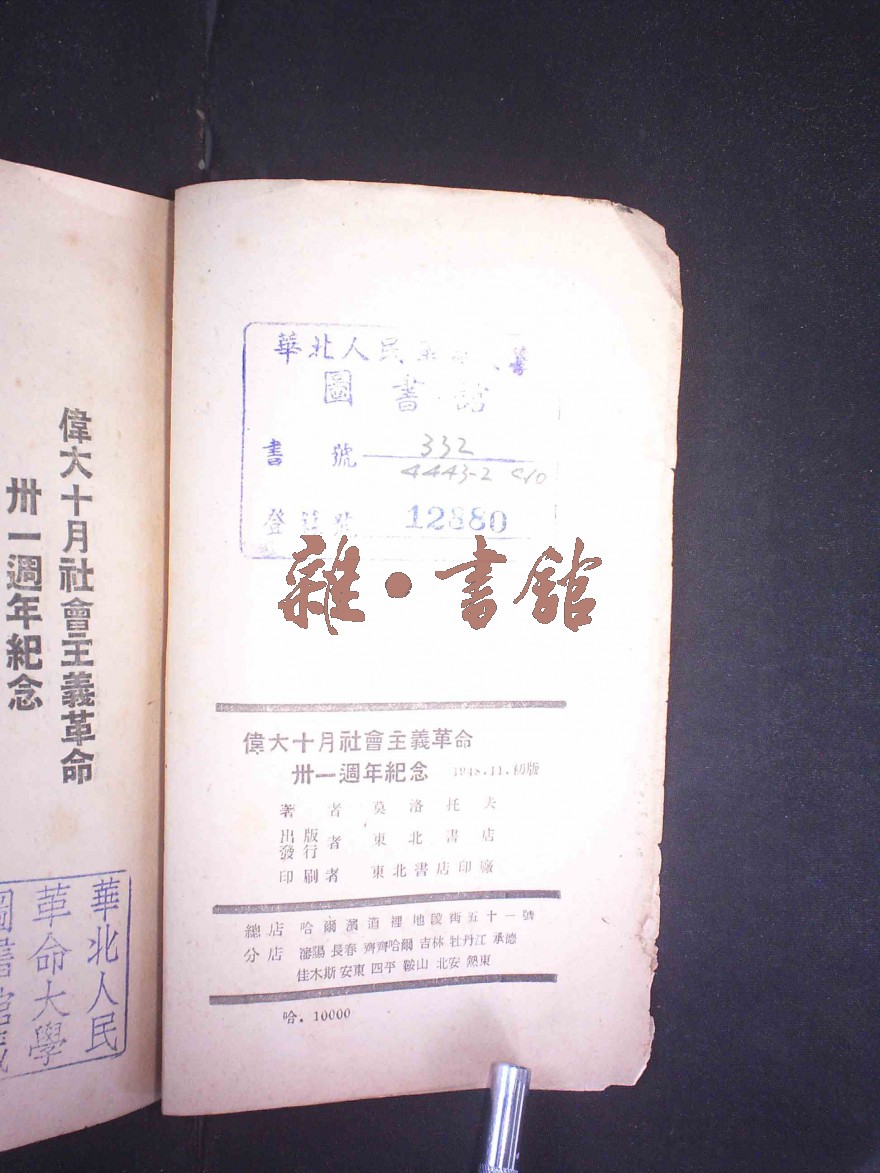 偉大十月社會主義革命
卅一週年紀念
華北人民
革命大學
圖書館藏
華北人民革
圖書館
書號 332
4443-2 c10
登 12880
雜·書館
偉大十月社會主義革命
卅一週年紀念 1948.11.初版
著者 莫洛托夫
出版發行者 東北書店
印刷者 東北書店印廠
總店 哈爾濱道裡地段街五十一號
分店 瀋陽 長春 齊齊哈爾 吉林 牡丹江 承德
佳木斯 安東 四平 鞍山 北安 熱東
哈.10000